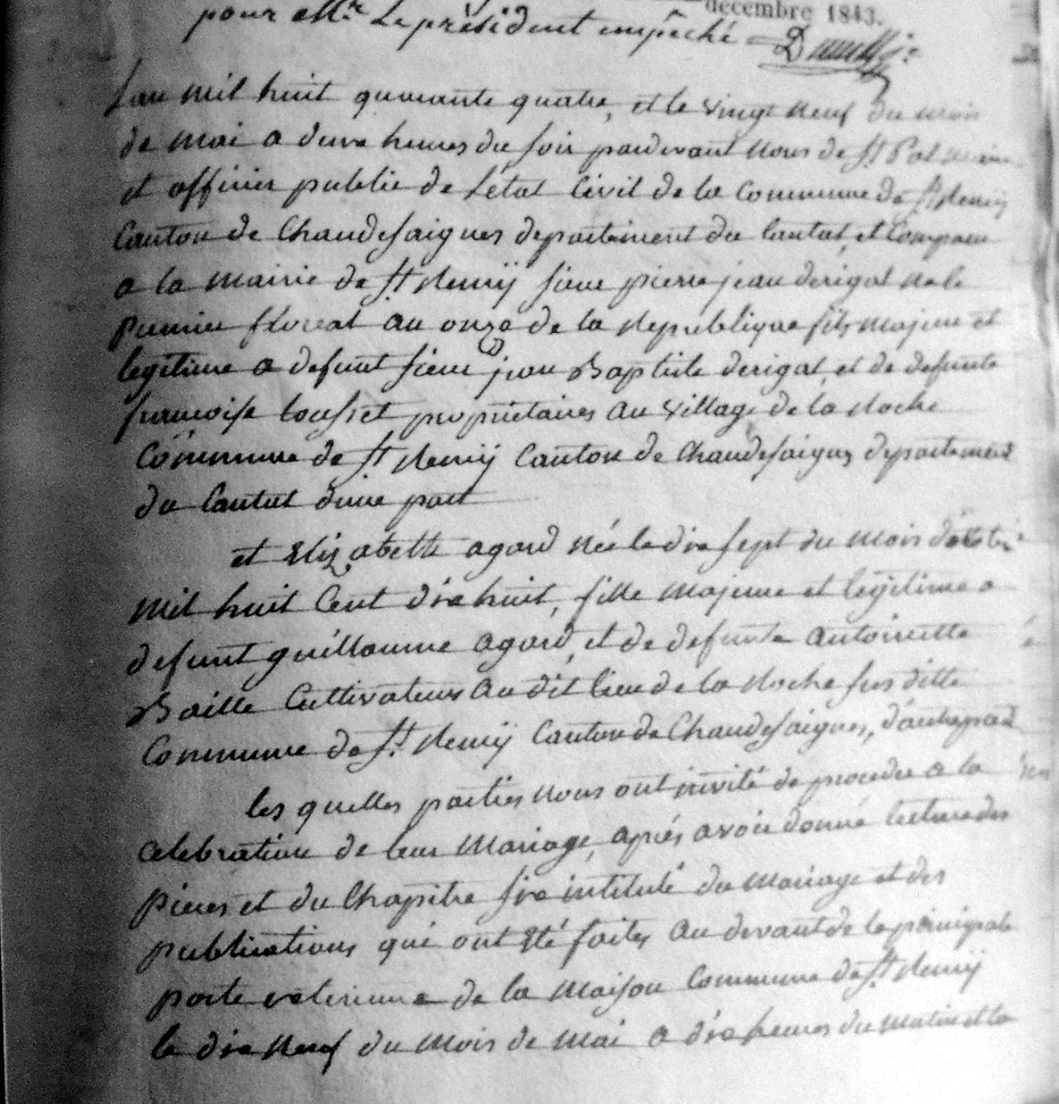 décembre 1843.
pour Mr. Le président empêché
Lan mil huit quarante quatre, et le vingt neuf du mois
de mai a deux heures du soir pardevant nous de St Pol maire
et officier public de Létat Civil de la Commune de St Remÿ
Canton de Chaudesaigues departement du Cantal, est Comparu
a la mairie de St Remÿ sieur pierre jean derigal né le
premier floreal an onze de la Republique fils majeur et
legitime a defunt sieur jean Baptiste derigal, et de defunte
francoise propriétaires au village de la Roche
Commune de St Remÿ Canton de Chaudesaigues departement
du Cantal dune part
et Elizabette agard née le dix sept du mois
mil huit Cent dix huit, fille majeure et legitime a
defunt guillaume agard, et de defunte antoinette
Baille Cultivateurs au dit lieu de la Roche sus ditte
Commune de St. Remÿ Canton de Chaudesaigues, d'autre part
les quelles parties nous ont invité de proceder a la
celebration de leur Mariage, aprés avoir donné lecture des
pieces et du Chapitre six intitulé du Mariage et des
publications qui ont été faites au devant de la principale
porte exterieure de la Maison Commune de St. Remÿ
le dix Neuf du mois de mai a dix heures du matin et le